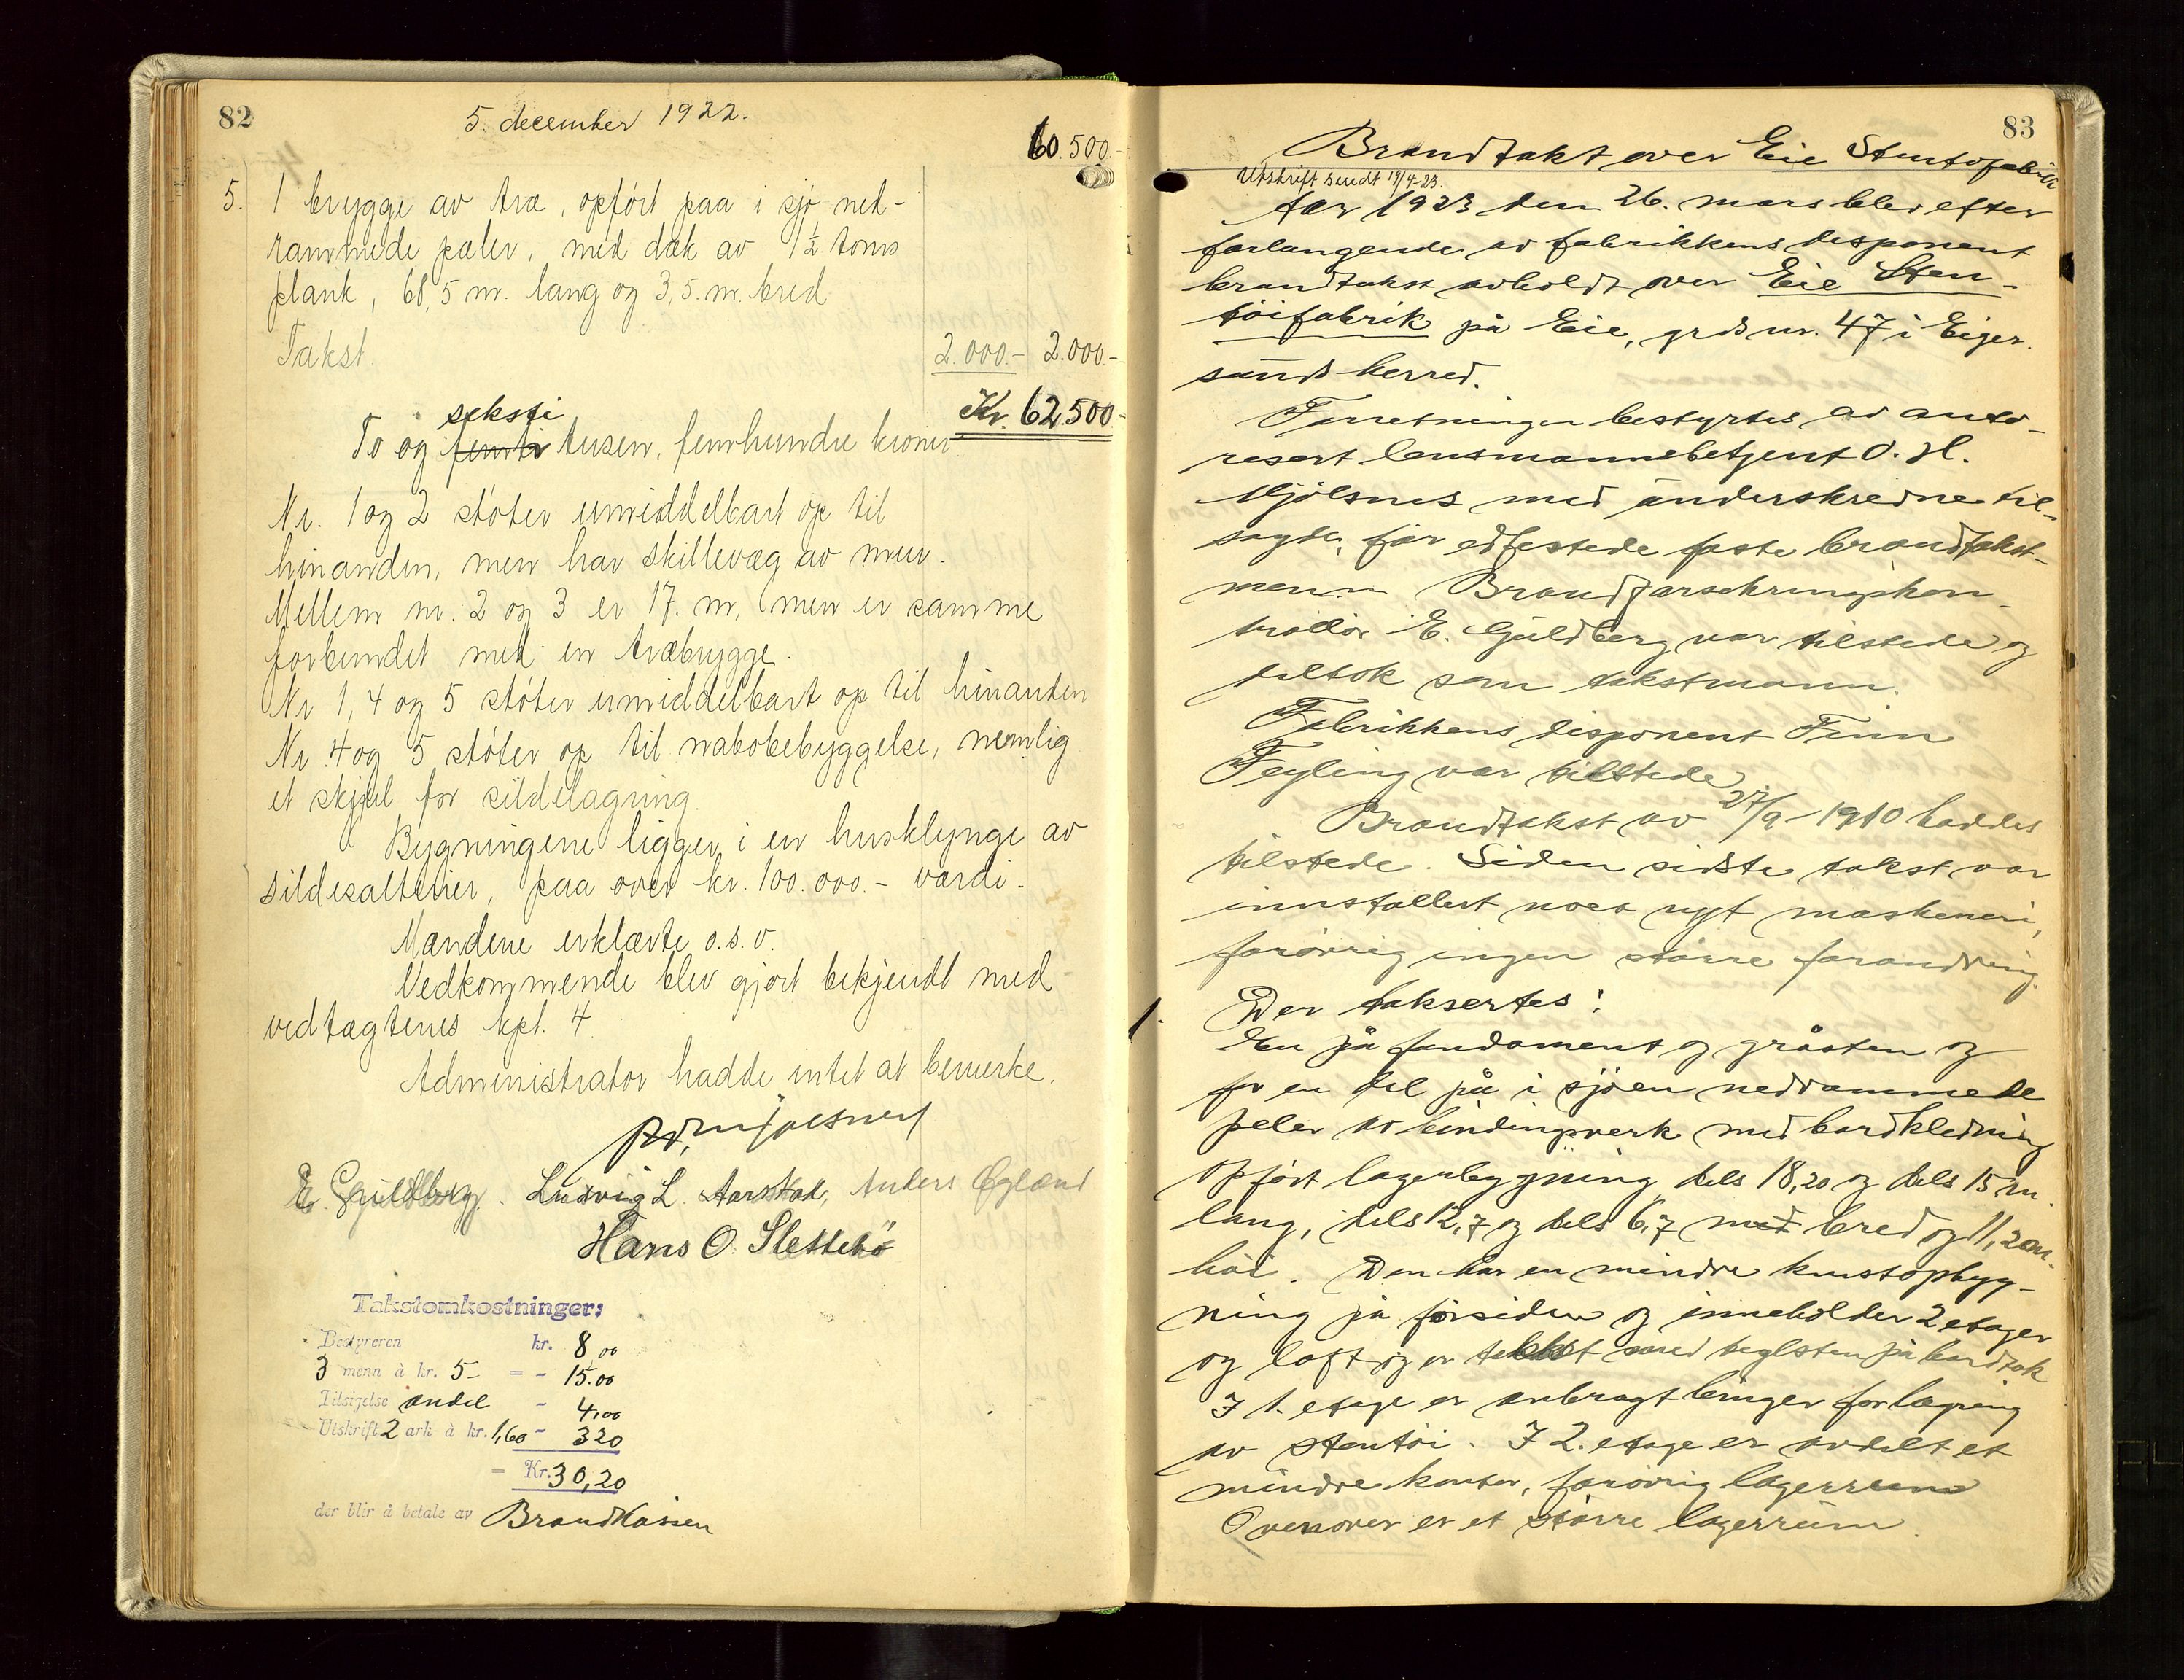 82
5. december 1922.
60.500.-
5. 1 brygge av træ, opført paa i sjø ned-
rammede pæler, med dæk av 1½ toms
plank, 68,5 m. lang og 3,5 m. bred
Takst. 2.000.- 2.000.-
Kr. 62.500.-
seksti
To og femti tusen, femhundre kroner.
Nr. 1 og 2 støter umiddelbart op til
hinanden, men har skillevæg av mur.
Mellem nr. 2 og 3 er 17. m, men er samme
forbundet med en træbrygge.
Nr 1, 4 og 5 støter umiddelbart op til hinanden
Nr. 4 og 5 støter op til nabobebyggelse, nemlig
et skjul for sildelagring.
Bygningene ligger i en husklynge av
sildesalterier, paa over kr. 100.000.- værdi.
Mændene erklærte o.s.v.
Vedkommende blev gjort bekjendt med
vedtægtenes kpl. 4
Administrator hadde intet at bemerke.
E. Guldberg. Ludvig L. Aarstad, Anders Øgland
Hans O. Slettebø
Takstomkostninger:
Bestyreren kr. 8,00
3 menn à kr. 5- = - 15.00
Tilsigelse andel - 4,00
Utskrift 2 ark à kr. 1,60 - 3 20
= Kr. 30,20
der blir å betale av Brandkassen
83
Brandtakst over Eie Stentøfabrik
Utskrift sendt 19/4-23.
Aar 1923 den 26. mars blev efter
forlangende av fabrikkens disponent
brandtakst avholdt over Eie Sten-
tøifabrik på Eie, grds nr. 47 i Eiger-
sunds herred.
Forretningen bestyrtes av auto-
risert lensmannsbetjent O. H.
Mjølsnes med underskrevne til-
sagte, før edfestede faste brandtakst-
menn Brandforsikringskon-
trollør E. Guldberg var tilstede og
deltok som takstmann.
Fabrikkens disponent Finn
Feyling var tilstede
Brandtakst av 27/9-1910 haddes
tilstede. Siden sidste takst var
innstallert noes nyt maskineri,
forøvrig ingen større forandring.
1. Der taksertes:
En på fundament og gråsten og
for en del på i sjøen nedrammede
peler av bindingsverk med bordkledning
opført lagerbygning dels 18,20 og dels 15 m.
lang, dels 12,7 og dels 6,7 med bred og 11,20 m.
høi. Den har en mindre kvistopbyg-
ning på forsiden og inneholder 2 etager
og loft og er tekket med teglsten på bordtak
I 1. etage er anbragt binger for lagring
av stentøi. I 2. etage er avdelt et
mindre kontor, forøvrig lagerrum
Ovenover er et større lagerrum.